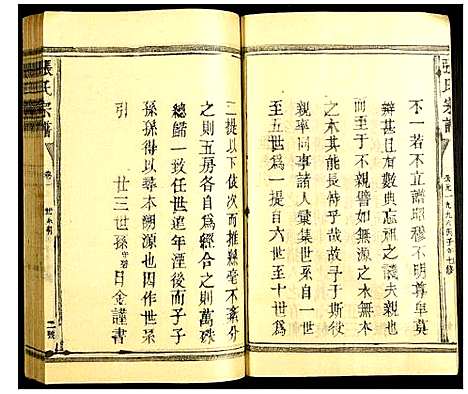 張氏宗譜
不一若不立譜昭穆不明尊卑莫
辨甚且有數典忘祖之譏夫親也
而至於不親譬如無源之水無本
之木其能長恃哉故予于斯役
親率同事諸人彙集世系自一世
至五世為一提自六世至十世為
二提以下倣次而推絲毫不紊分
之則五房各自為經合之則萬殊
總歸一致任世遠年湮後而子子
孫孫得以尋本溯源也因作世系
引
廿三世孫 日金謹書
張氏宗譜
卷一
二號